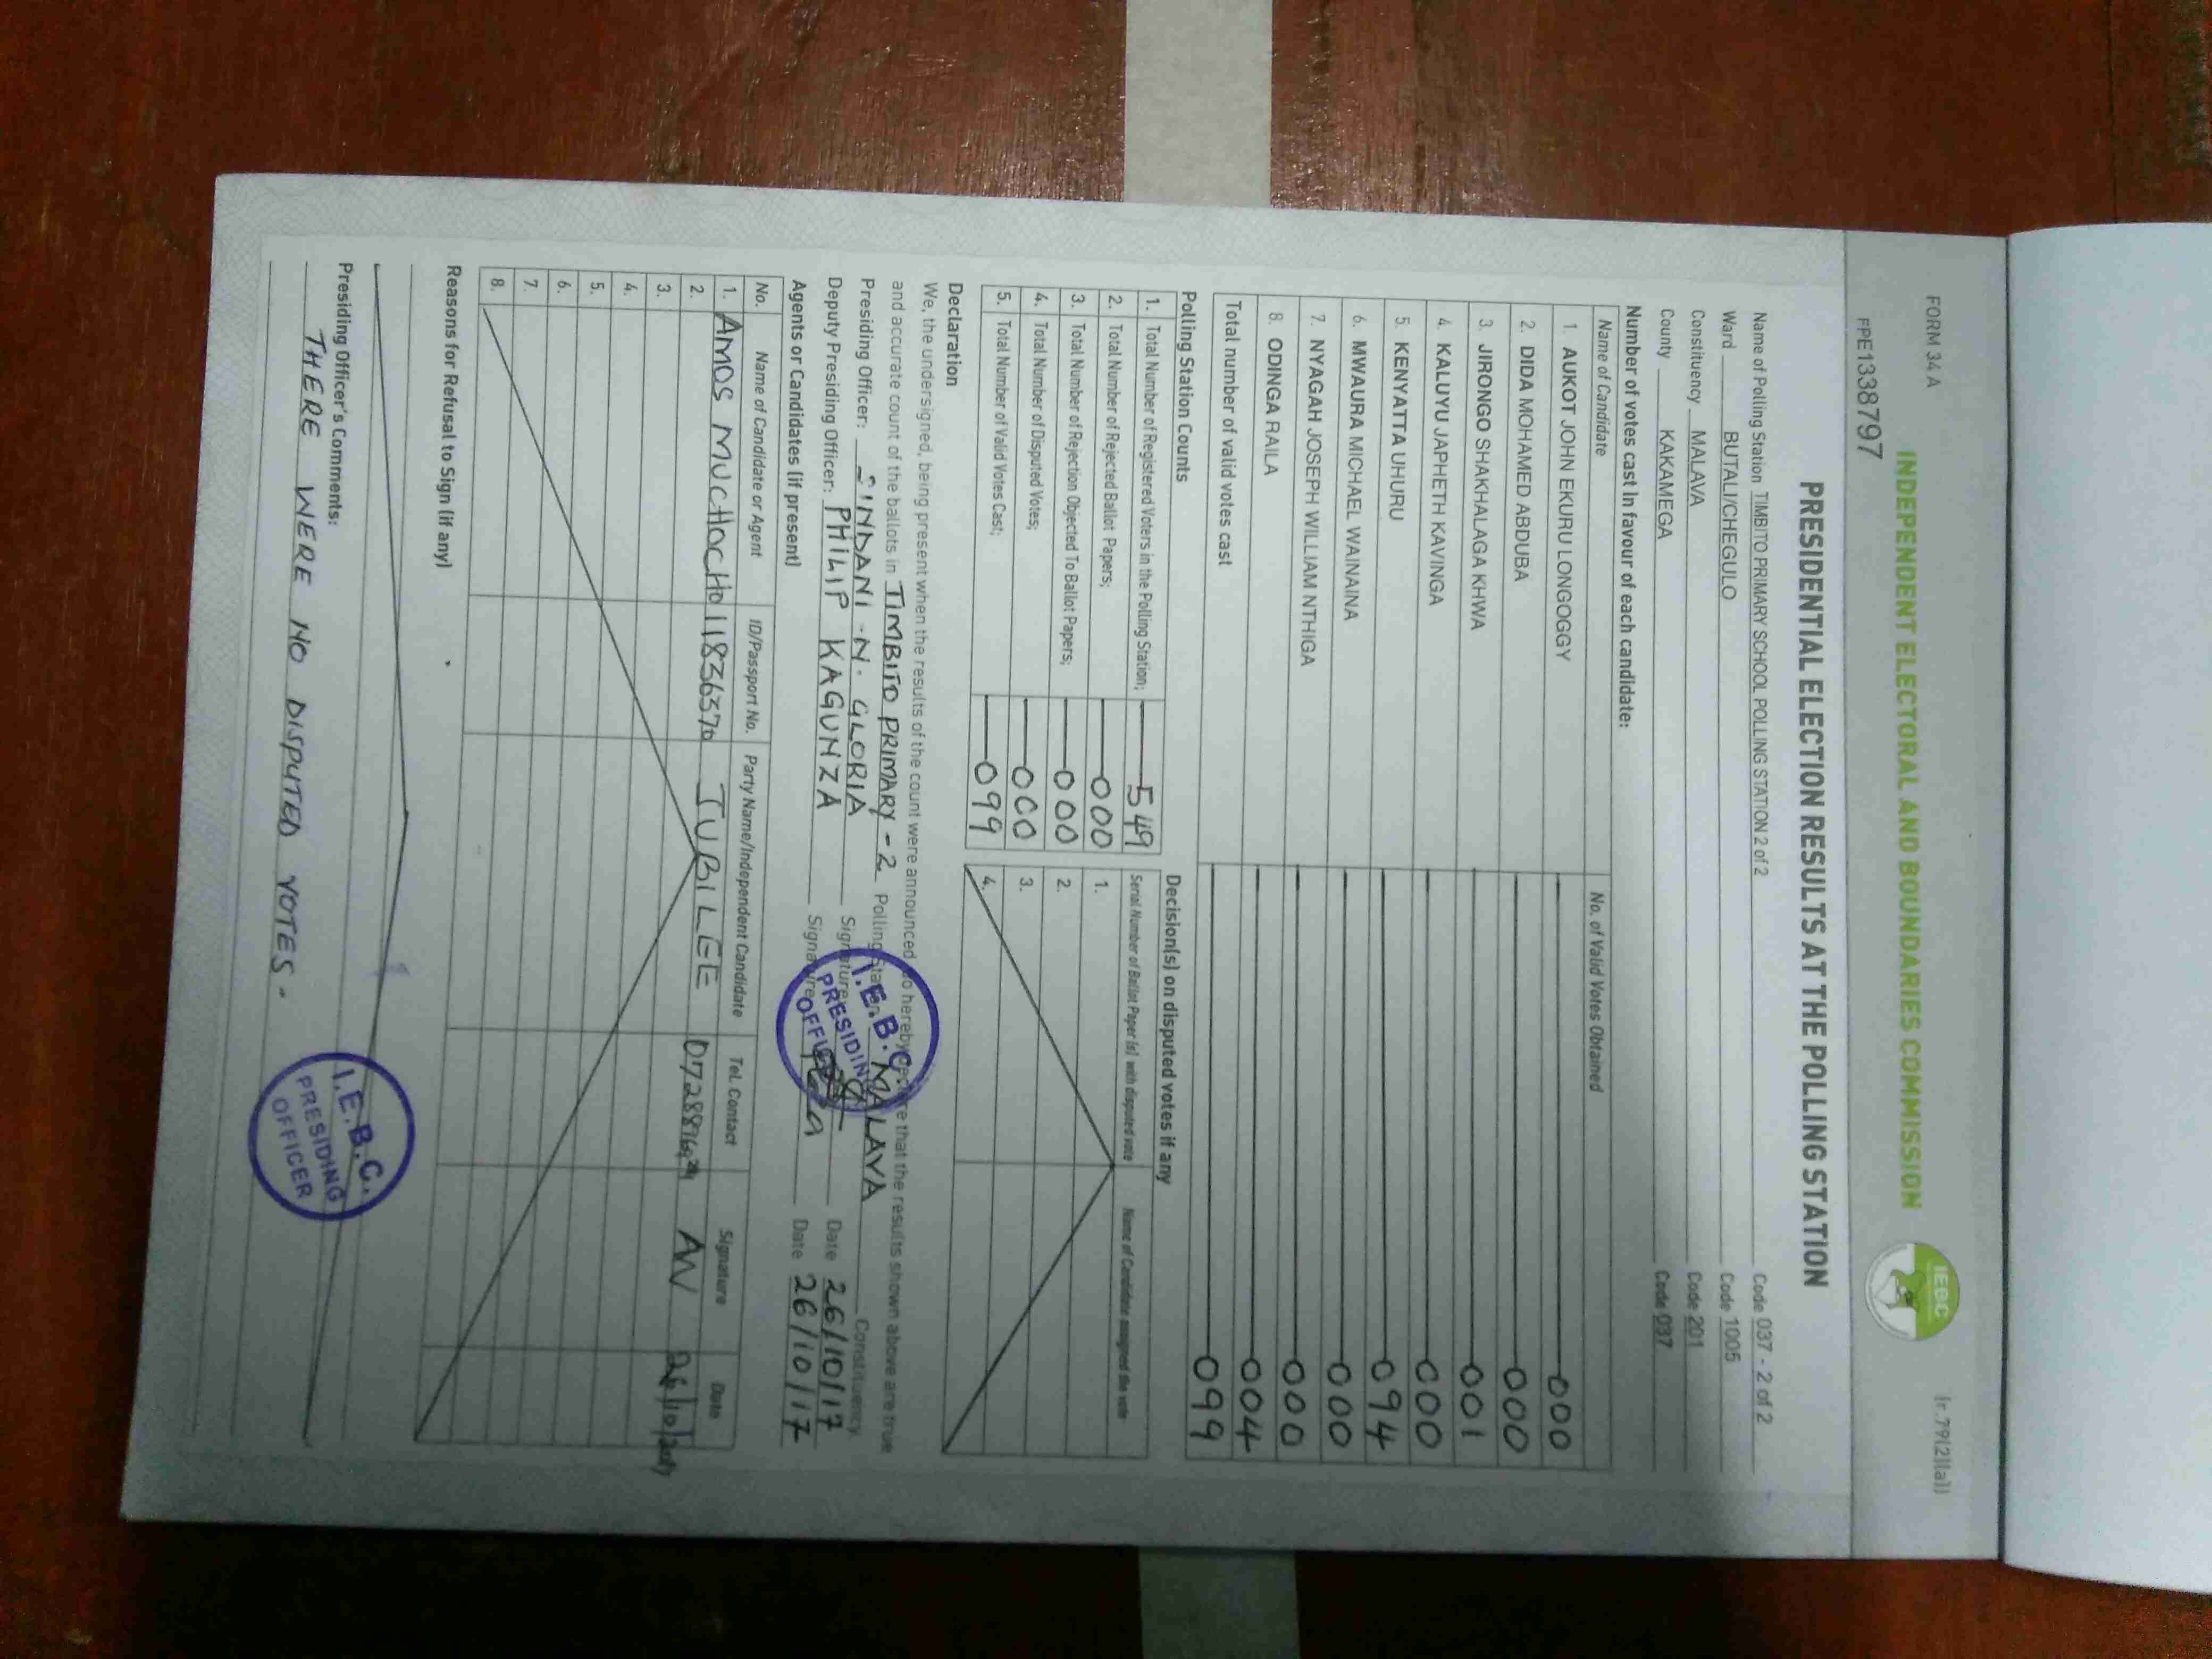 FORM 34 A
(r.79(2)(a))
INDEPENDENT ELECTORAL AND BOUNDARIES COMMISSION
IEBC
FPE1338797
PRESIDENTIAL ELECTION RESULTS AT THE POLLING STATION
Name of Polling Station TIMBITO PRIMARY SCHOOL POLLING STATION 2 of 2 Code 037 - 2 of 2
Ward BUTALI/CHEGULO Code 1005
Constituency MALAVA Code 201
County KAKAMEGA Code 037
Number of votes cast in favour of each candidate:
Name of Candidate No. of Valid Votes Obtained
1. AUKOT JOHN EKURU LONGOGGY 000
2. DIDA MOHAMED ABDUBA 000
3. JIRONGO SHAKHALAGA KHWA 001
4. KALUYU JAPHETH KAVINGA 000
5. KENYATTA UHURU 094
6. MWAURA MICHAEL WAINAINA 000
7. NYAGAH JOSEPH WILLIAM NTHIGA 000
8. ODINGA RAILA 004
Total number of valid votes cast 099
Polling Station Counts
1. Total Number of Registered Voters in the Polling Station; 549
2. Total Number of Rejected Ballot Papers; 000
3. Total Number of Rejection Objected To Ballot Papers; 000
4. Total Number of Disputed Votes; 000
5. Total Number of Valid Votes Cast; 099
Decision(s) on disputed votes if any
Serial Number of Ballot Paper (s) with disputed vote Name of Candidate assigned the vote
1.
2.
3.
4.
Declaration
We, the undersigned, being present when the results of the count were announced, do hereby declare that the results shown above are true
and accurate count of the ballots in TIMBITO PRIMARY - 2 Polling Station MALAVA Constituency
Presiding Officer: SINDANI N. GLORIA Signature Date 26/10/17
Deputy Presiding Officer: PHILIP KAGUNZA Signature Date 26/10/17
I.E.B.C. PRESIDING OFFICER
Agents or Candidates (if present)
No. Name of Candidate or Agent ID/Passport No. Party Name/Independent Candidate Tel. Contact Signature Date
1. AMOS MUCHOCHO 11836370 JUBILEE AN
2.
3.
4.
5.
6.
7.
8.
Reasons for Refusal to Sign (if any)
Presiding Officer's Comments:
THERE WERE NO DISPUTED VOTES.
I.E.B.C.
PRESIDING
OFFICER